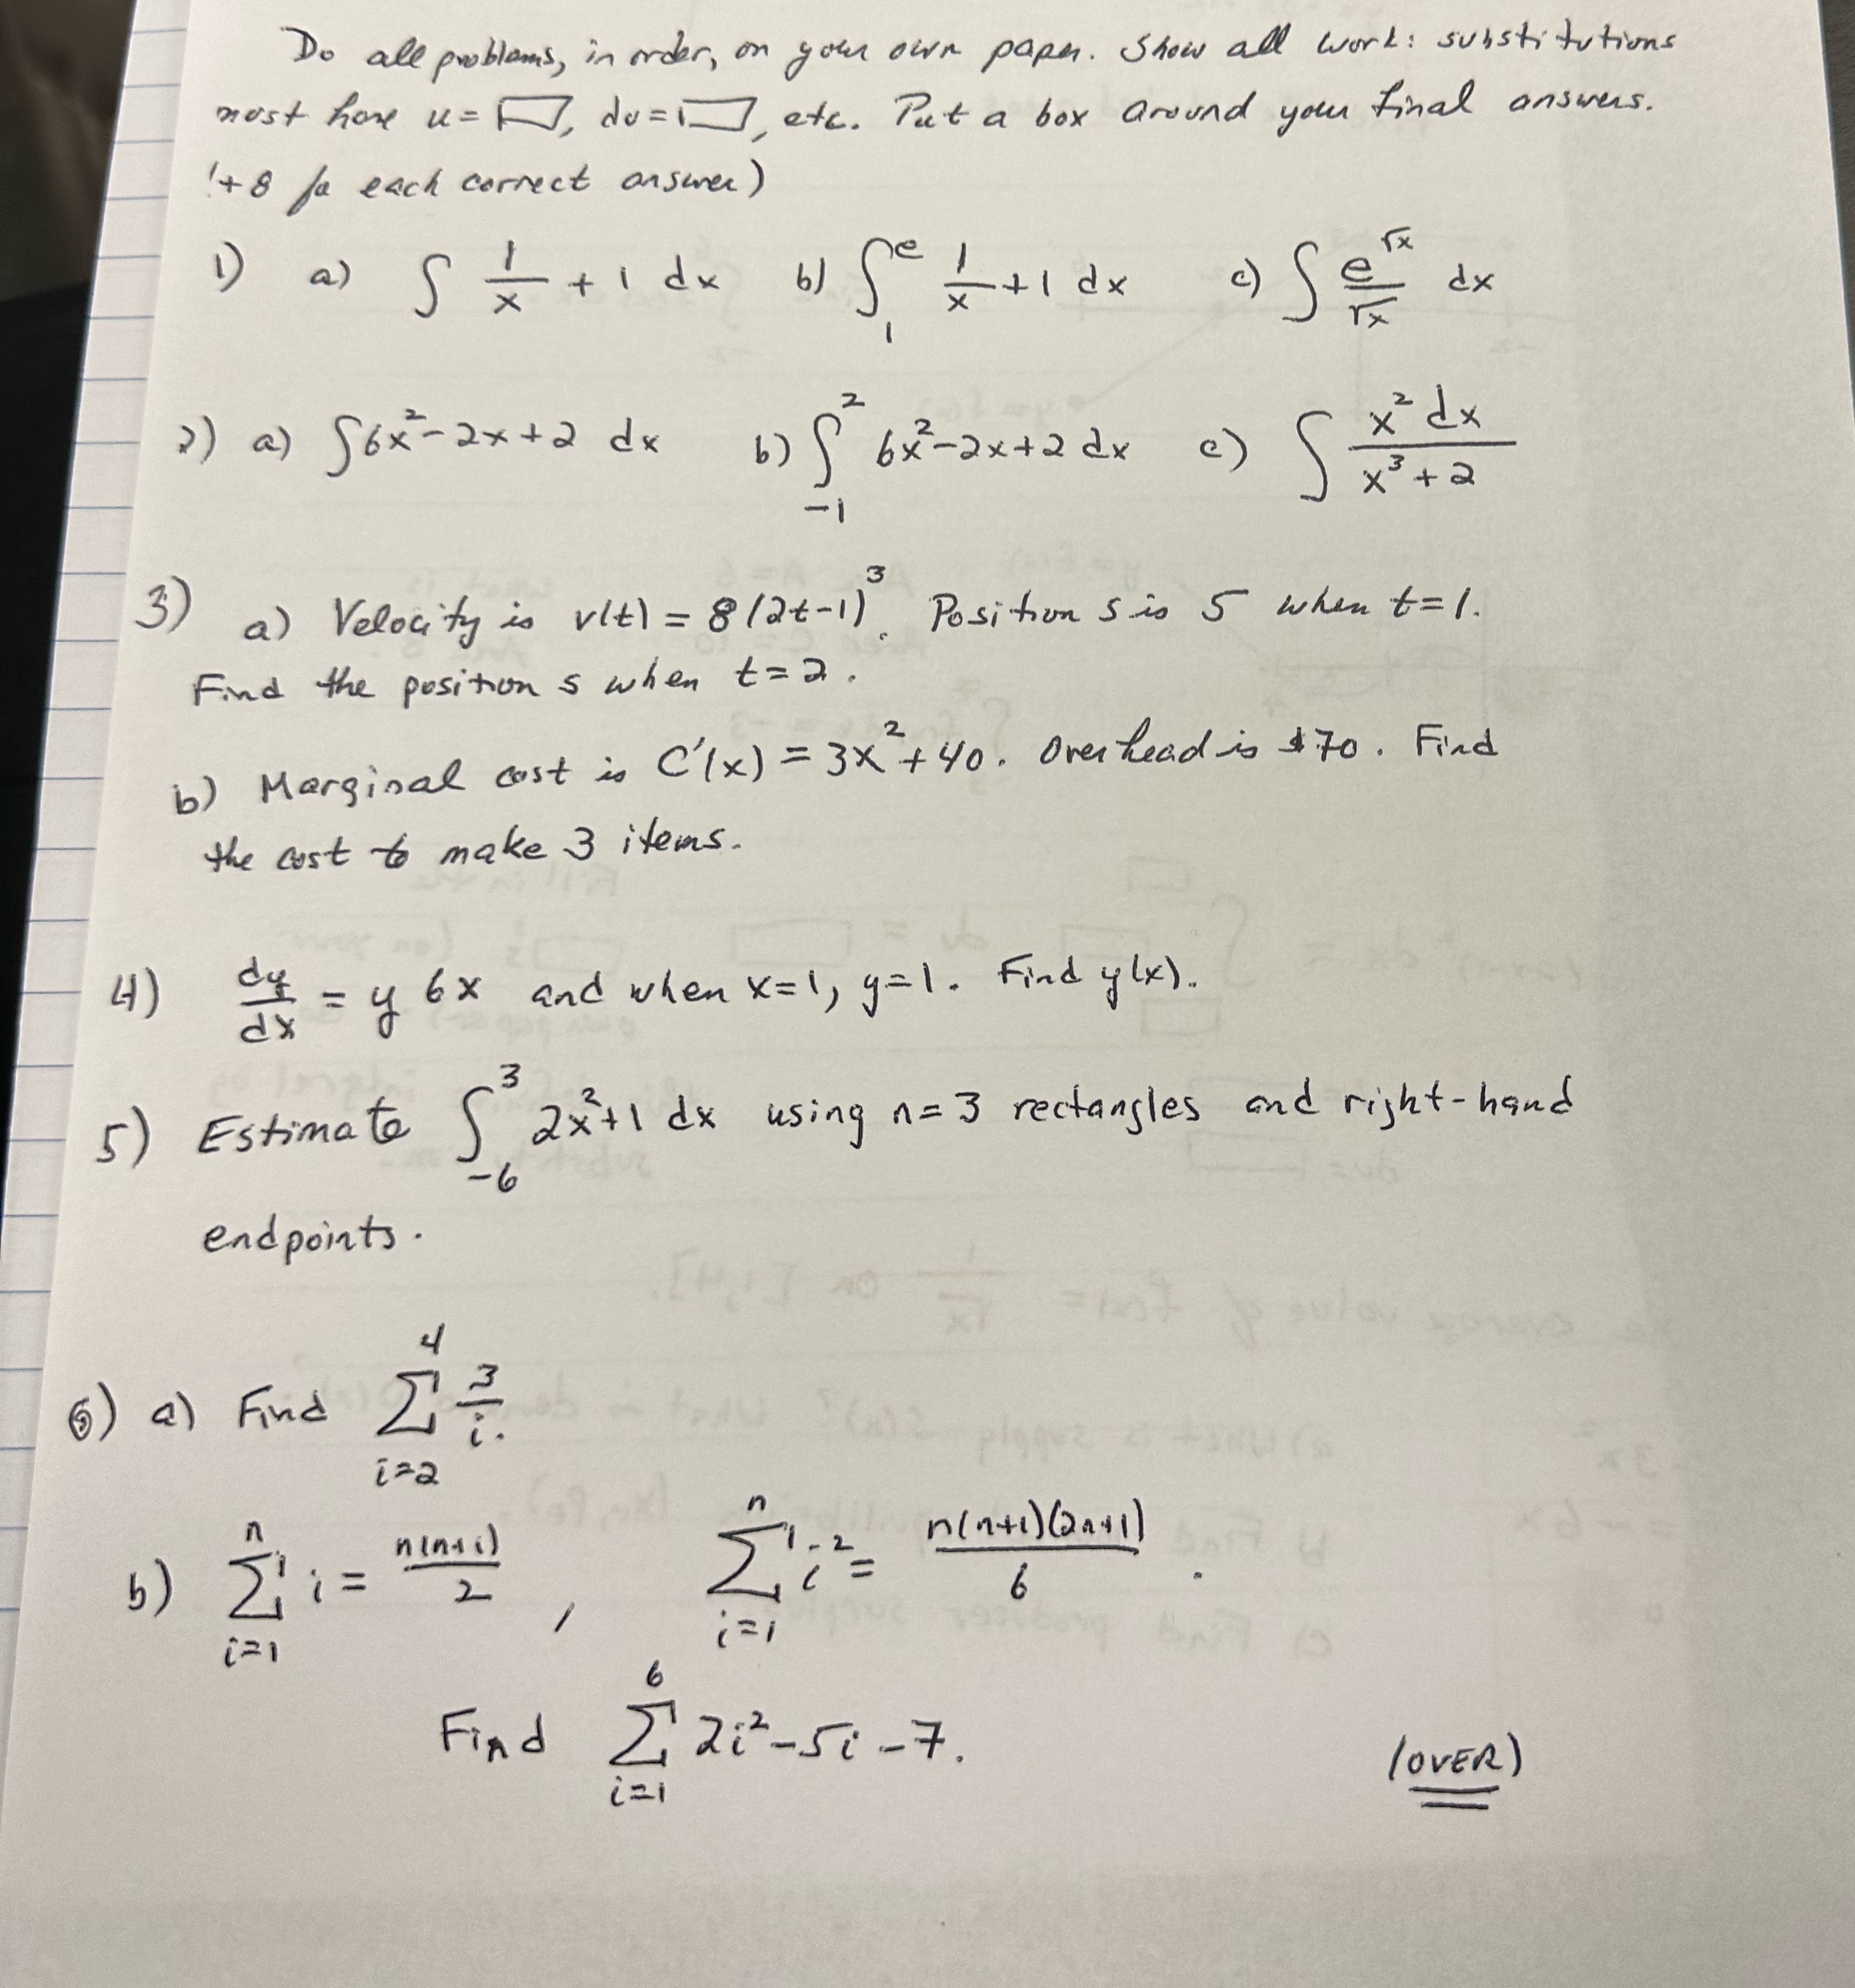 Do all problems, in order, on your own paper. Show all work: substitutions
most have u = ▭, du = ▭, etc. Put a box around your final answers.
(+8 for each correct answer)
1) a) ∫ 1/x + 1 dx b) ∫₁ᵉ 1/x + 1 dx c) ∫ e^√x / √x dx
2) a) ∫ 6x² - 2x + 2 dx b) ∫₋₁² 6x² - 2x + 2 dx c) ∫ x² dx / (x³ + 2)
3) a) Velocity is v(t) = 8(2t-1)³. Position s is 5 when t=1.
Find the position s when t=2.
b) Marginal cost is C'(x) = 3x² + 40. Overhead is $70. Find
the cost to make 3 items.
4) dy/dx = y 6x and when x=1, y=1. Find y(x).
5) Estimate ∫₋₆³ 2x² + 1 dx using n=3 rectangles and right-hand
endpoints.
6) a) Find Σ_{i=2}^{4} 3/i.
b) Σ_{i=1}^{n} i = n(n+1)/2 , Σ_{i=1}^{n} i² = n(n+1)(2n+1)/6 .
Find Σ_{i=1}^{6} 2i² - 5i - 7.
(OVER)